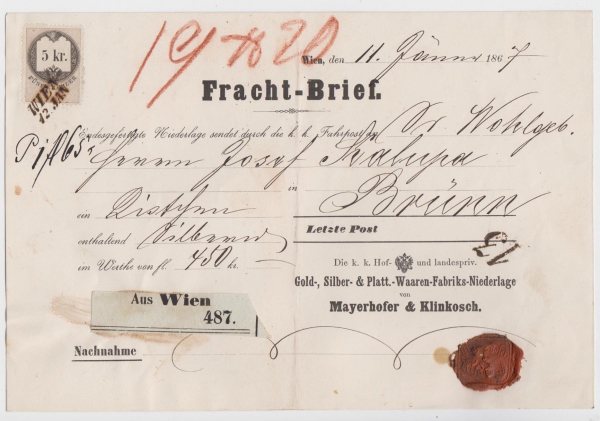 5 kr.
WIEN
19 20
Wien, den 11. Jänner 1867
Fracht-Brief.
Endesgefertigte Niederlage sendet durch die k. k. Fahrpost an Sr Wohlgeb.
Herrn Josef Skalupa
in Brünn
ein Kistchen
Letzte Post
enthaltend Silberw
im Werthe von fl. 450 kr. —
Die k. k. Hof- und landespriv.
Gold-, Silber- & Platt.-Waaren-Fabriks-Niederlage
von
Mayerhofer & Klinkosch.
Aus Wien
487.
Nachnahme